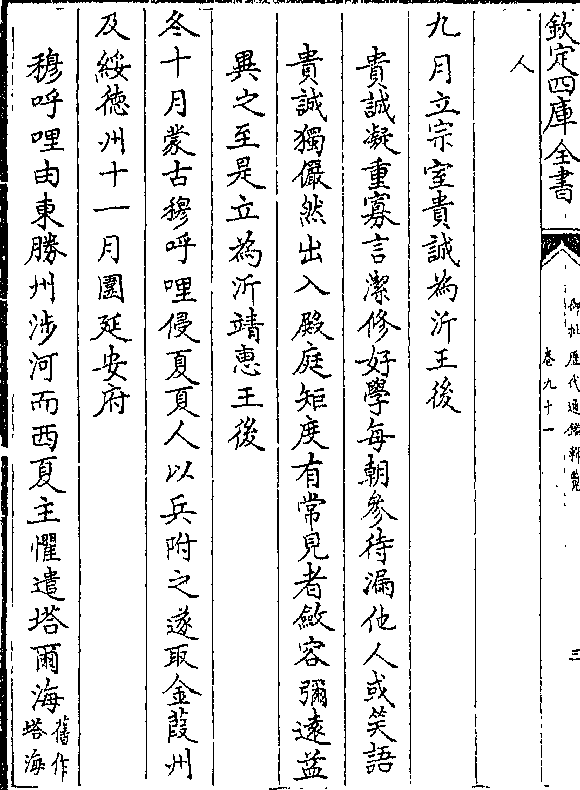 欽定四庫全書
御批歷代通鑑輯覽
卷九十一
三
人
九月立宗室貴誠為沂王後
貴誠凝重寡言潔修好學每朝參待漏他人或笑語
貴誠獨儼然出入殿庭矩度有常見者斂容彌遠益
異之至是立為沂靖惠王後
冬十月蒙古穆呼哩侵夏夏人以兵附之遂取金葭州
及綏德州十一月圍延安府
穆呼哩由東勝州涉河而西夏主懼遣塔爾海舊作塔海